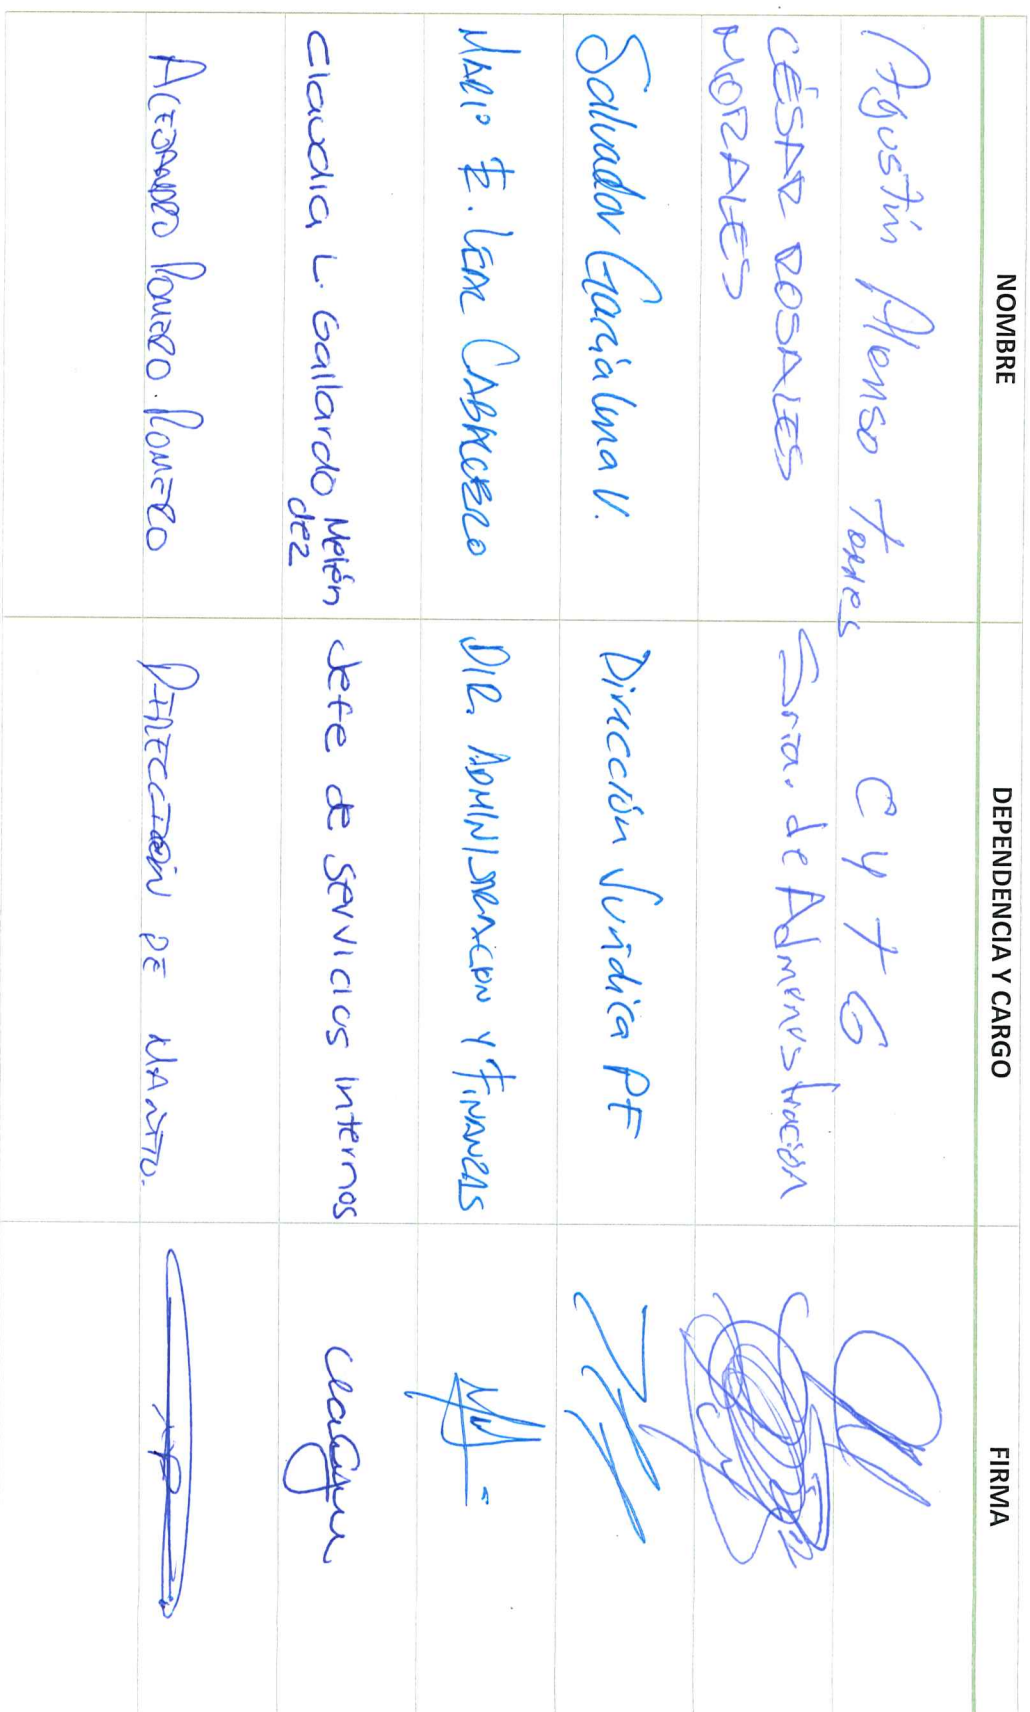 NOMBRE DEPENDENCIA Y CARGO FIRMA
Agustín Alonso Torres C Y T G
CÉSAR ROSALES MORALES Sria. de Administración
Salvador García Luna V. Dirección Jurídica PF
MARIO E. LEAL CABALLERO DIR. ADMINISTRACION Y FINANZAS
Claudia L. Gallardo Melén
dez Jefe de Servicios Internos
ALEJANDRO ROMERO ROMERO DIRECCIÓN DE MANTTO.